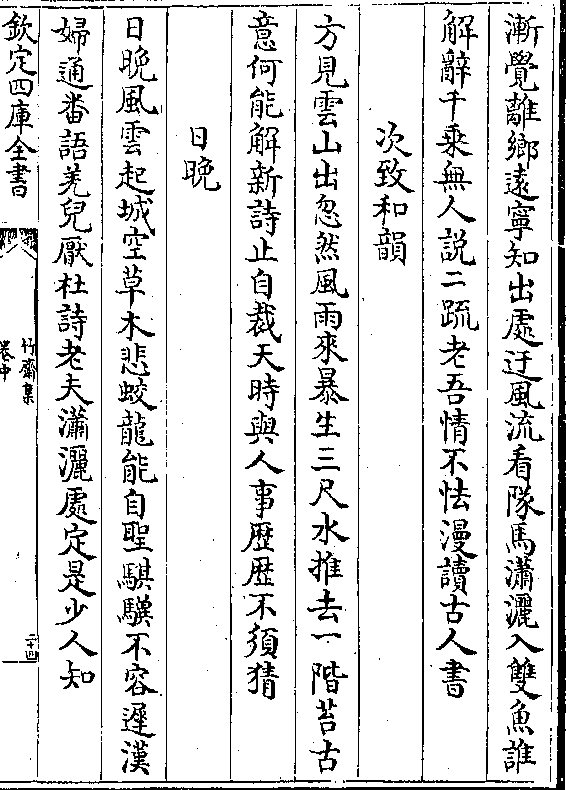 漸覺離鄉遠寧知出處迂風流看隊馬瀟灑入雙魚誰
解辭千乘無人説二疏老吾情不怯漫讀古人書
次致和韻
方見雲山出忽然風雨來暴生三尺水推去一階苔古
意何能解新詩止自裁天時與人事歴歴不須猜
日晚
日晚風雲起城空草木悲蛟龍能自聖騏驥不容遲漢
婦通番語羌兒厭杜詩老夫瀟灑處定是少人知
欽定四庫全書
竹齋集
卷中
二十四